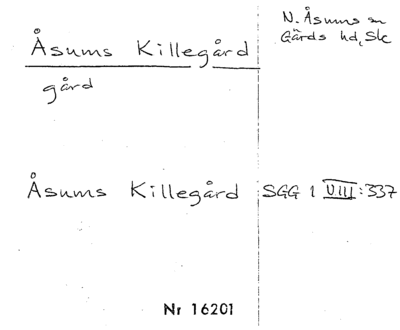 Åsums Killegård
N. Åsums sn
Gärds hd, Sk
gård
Åsums Killegård SGG 1 VIII:337
Nr 16201